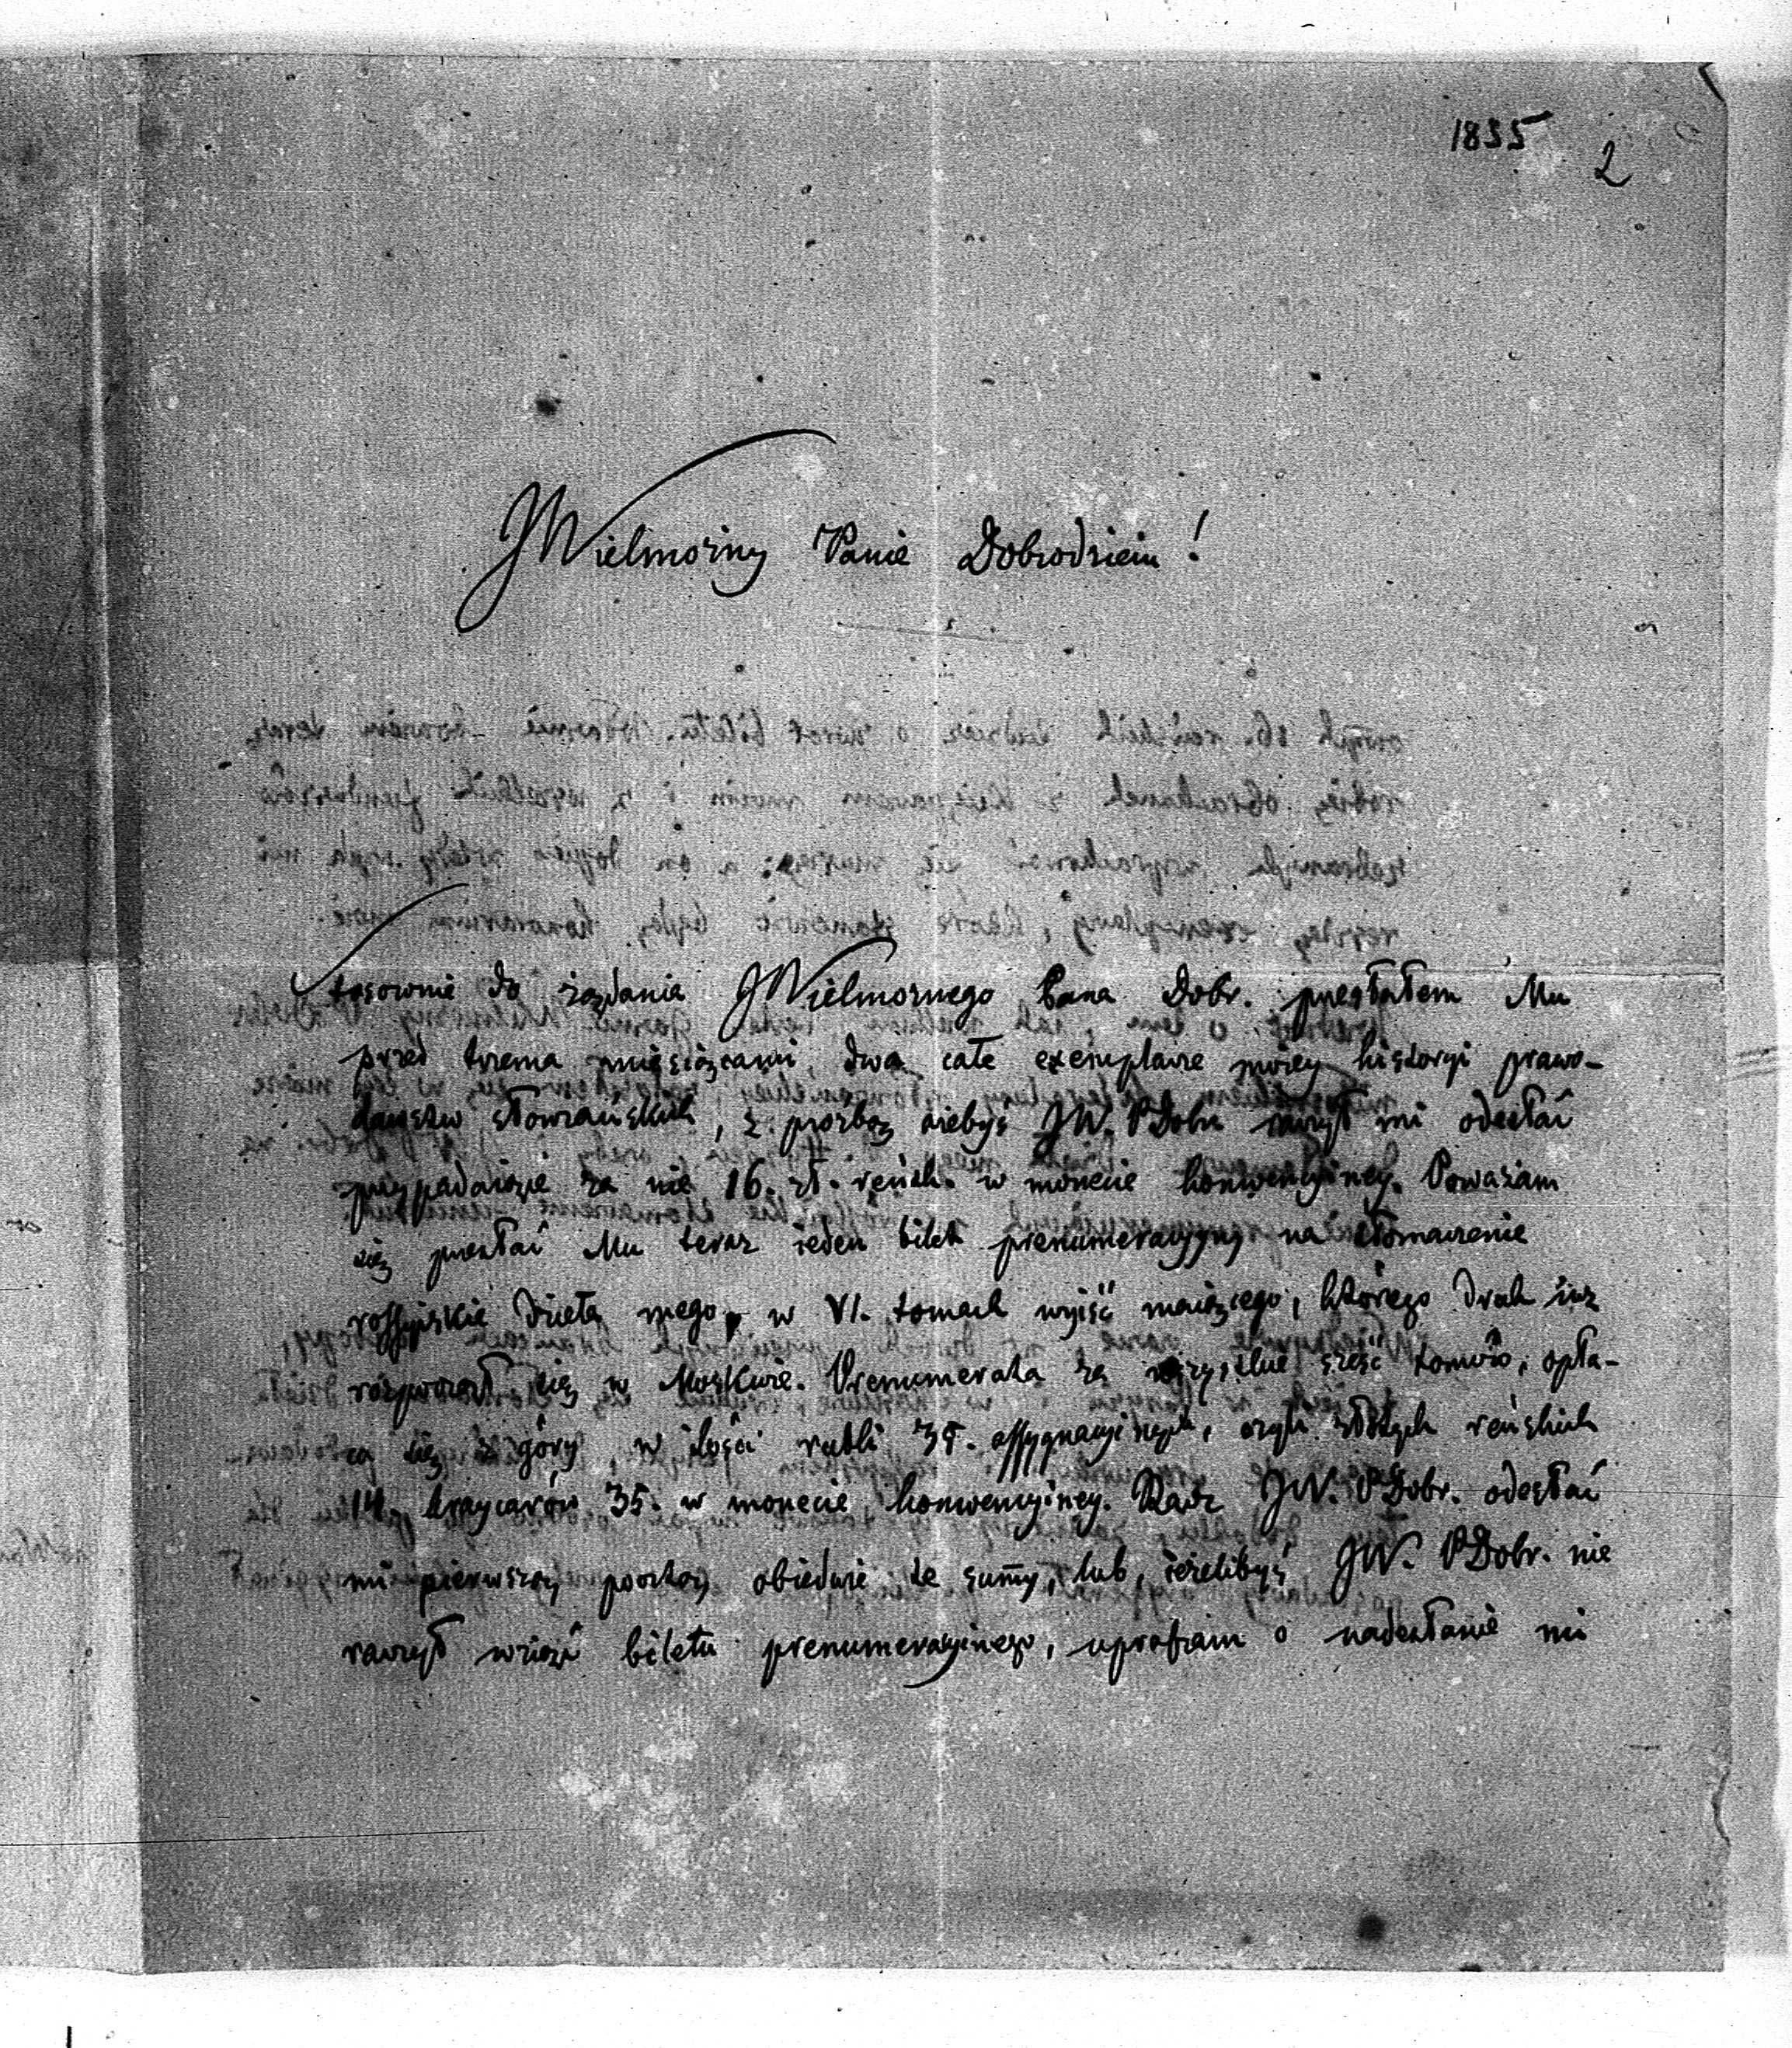 1835
2
JWielmożny Panie Dobrodzieiu!
Stosownie do żądania JWielmożnego Pana Dobr. przesłałem Mu
przed trzema miesiącami, dwa całe exemplarze moiey historyi prawo-
dawstw słowiańskich, z prozbą ażebyś JW. PDobr. raczył mi odesłać
przypadaiące za nie 16. zł. reńsk. w monecie konwencyiney. Poważam
się przesłać Mu teraz ieden bilet prenumeracyyny na tłomaczenie
rossyiskie dzieła mego, w VI. tomach wyiść maiącego, którego druk iuż
rozpoczął się w Moskwie. Prenumerata za wszystkie sześć tomów, opła-
ca się z góry, w ilości rubli 35. assygnacyinych, czyli złotych reńskich
14, kraycarów 35. w monecie konwencyiney. Racz JW. PDobr. odesłać
mi pierwszą pocztą obiedwie te summy, lub, ieżelibyś JW. PDobr. nie
raczył wziąść biletu prenumeracyinego, upraszam o nadesłanie mi